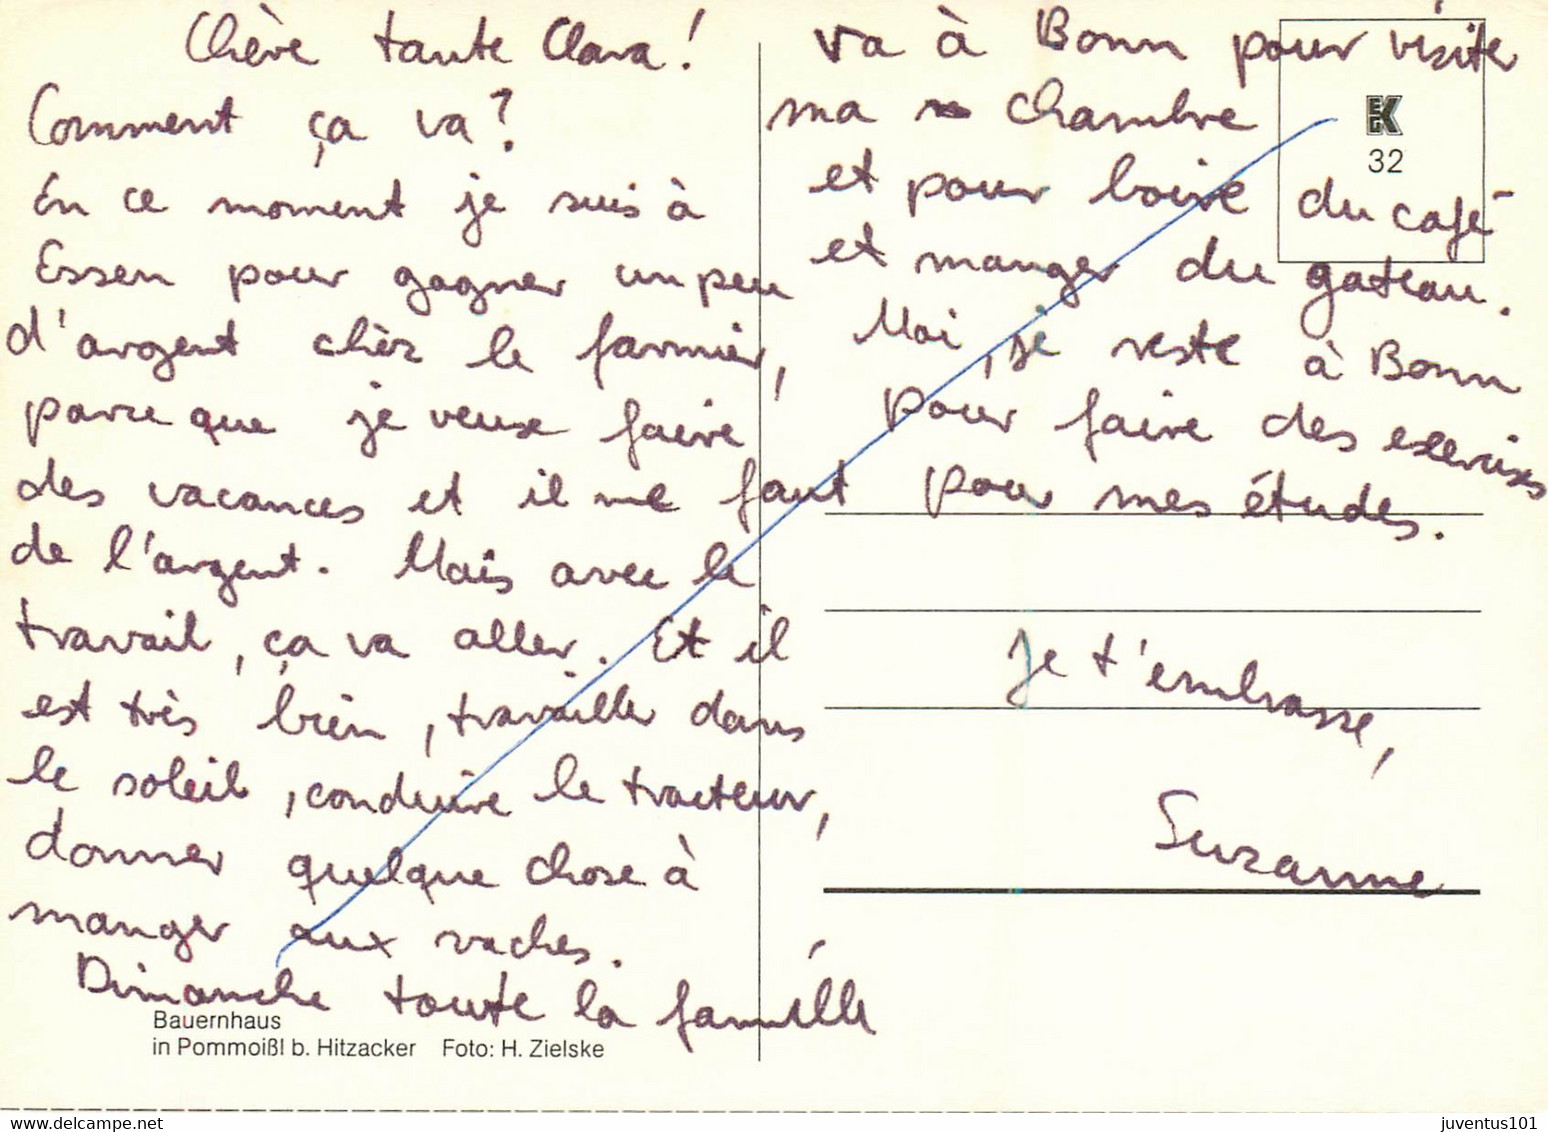 Chère tante Clara!
Comment ça va?
En ce moment je suis à
Essen pour gagner un peu
d'argent chèz le farmier,
parce que je veux faire
des vacances et il me faut
de l'argent. Mais avec le
travail, ça va aller. Et il
est très bien, travailler dans
le soleil, conduire le tracteur,
donner quelque chose à
manger aux vaches.
Dimanche toute la famille
va à Bonn pour visiter
ma chambre
et pour boire du café
et manger du gateau.
Moi, je reste à Bonn
pour faire des exercises
pour mes études.
Je t'embrasse,
Suzanne
EK
32
Bauernhaus
in Pommoißl b. Hitzacker Foto: H. Zielske
juventus101